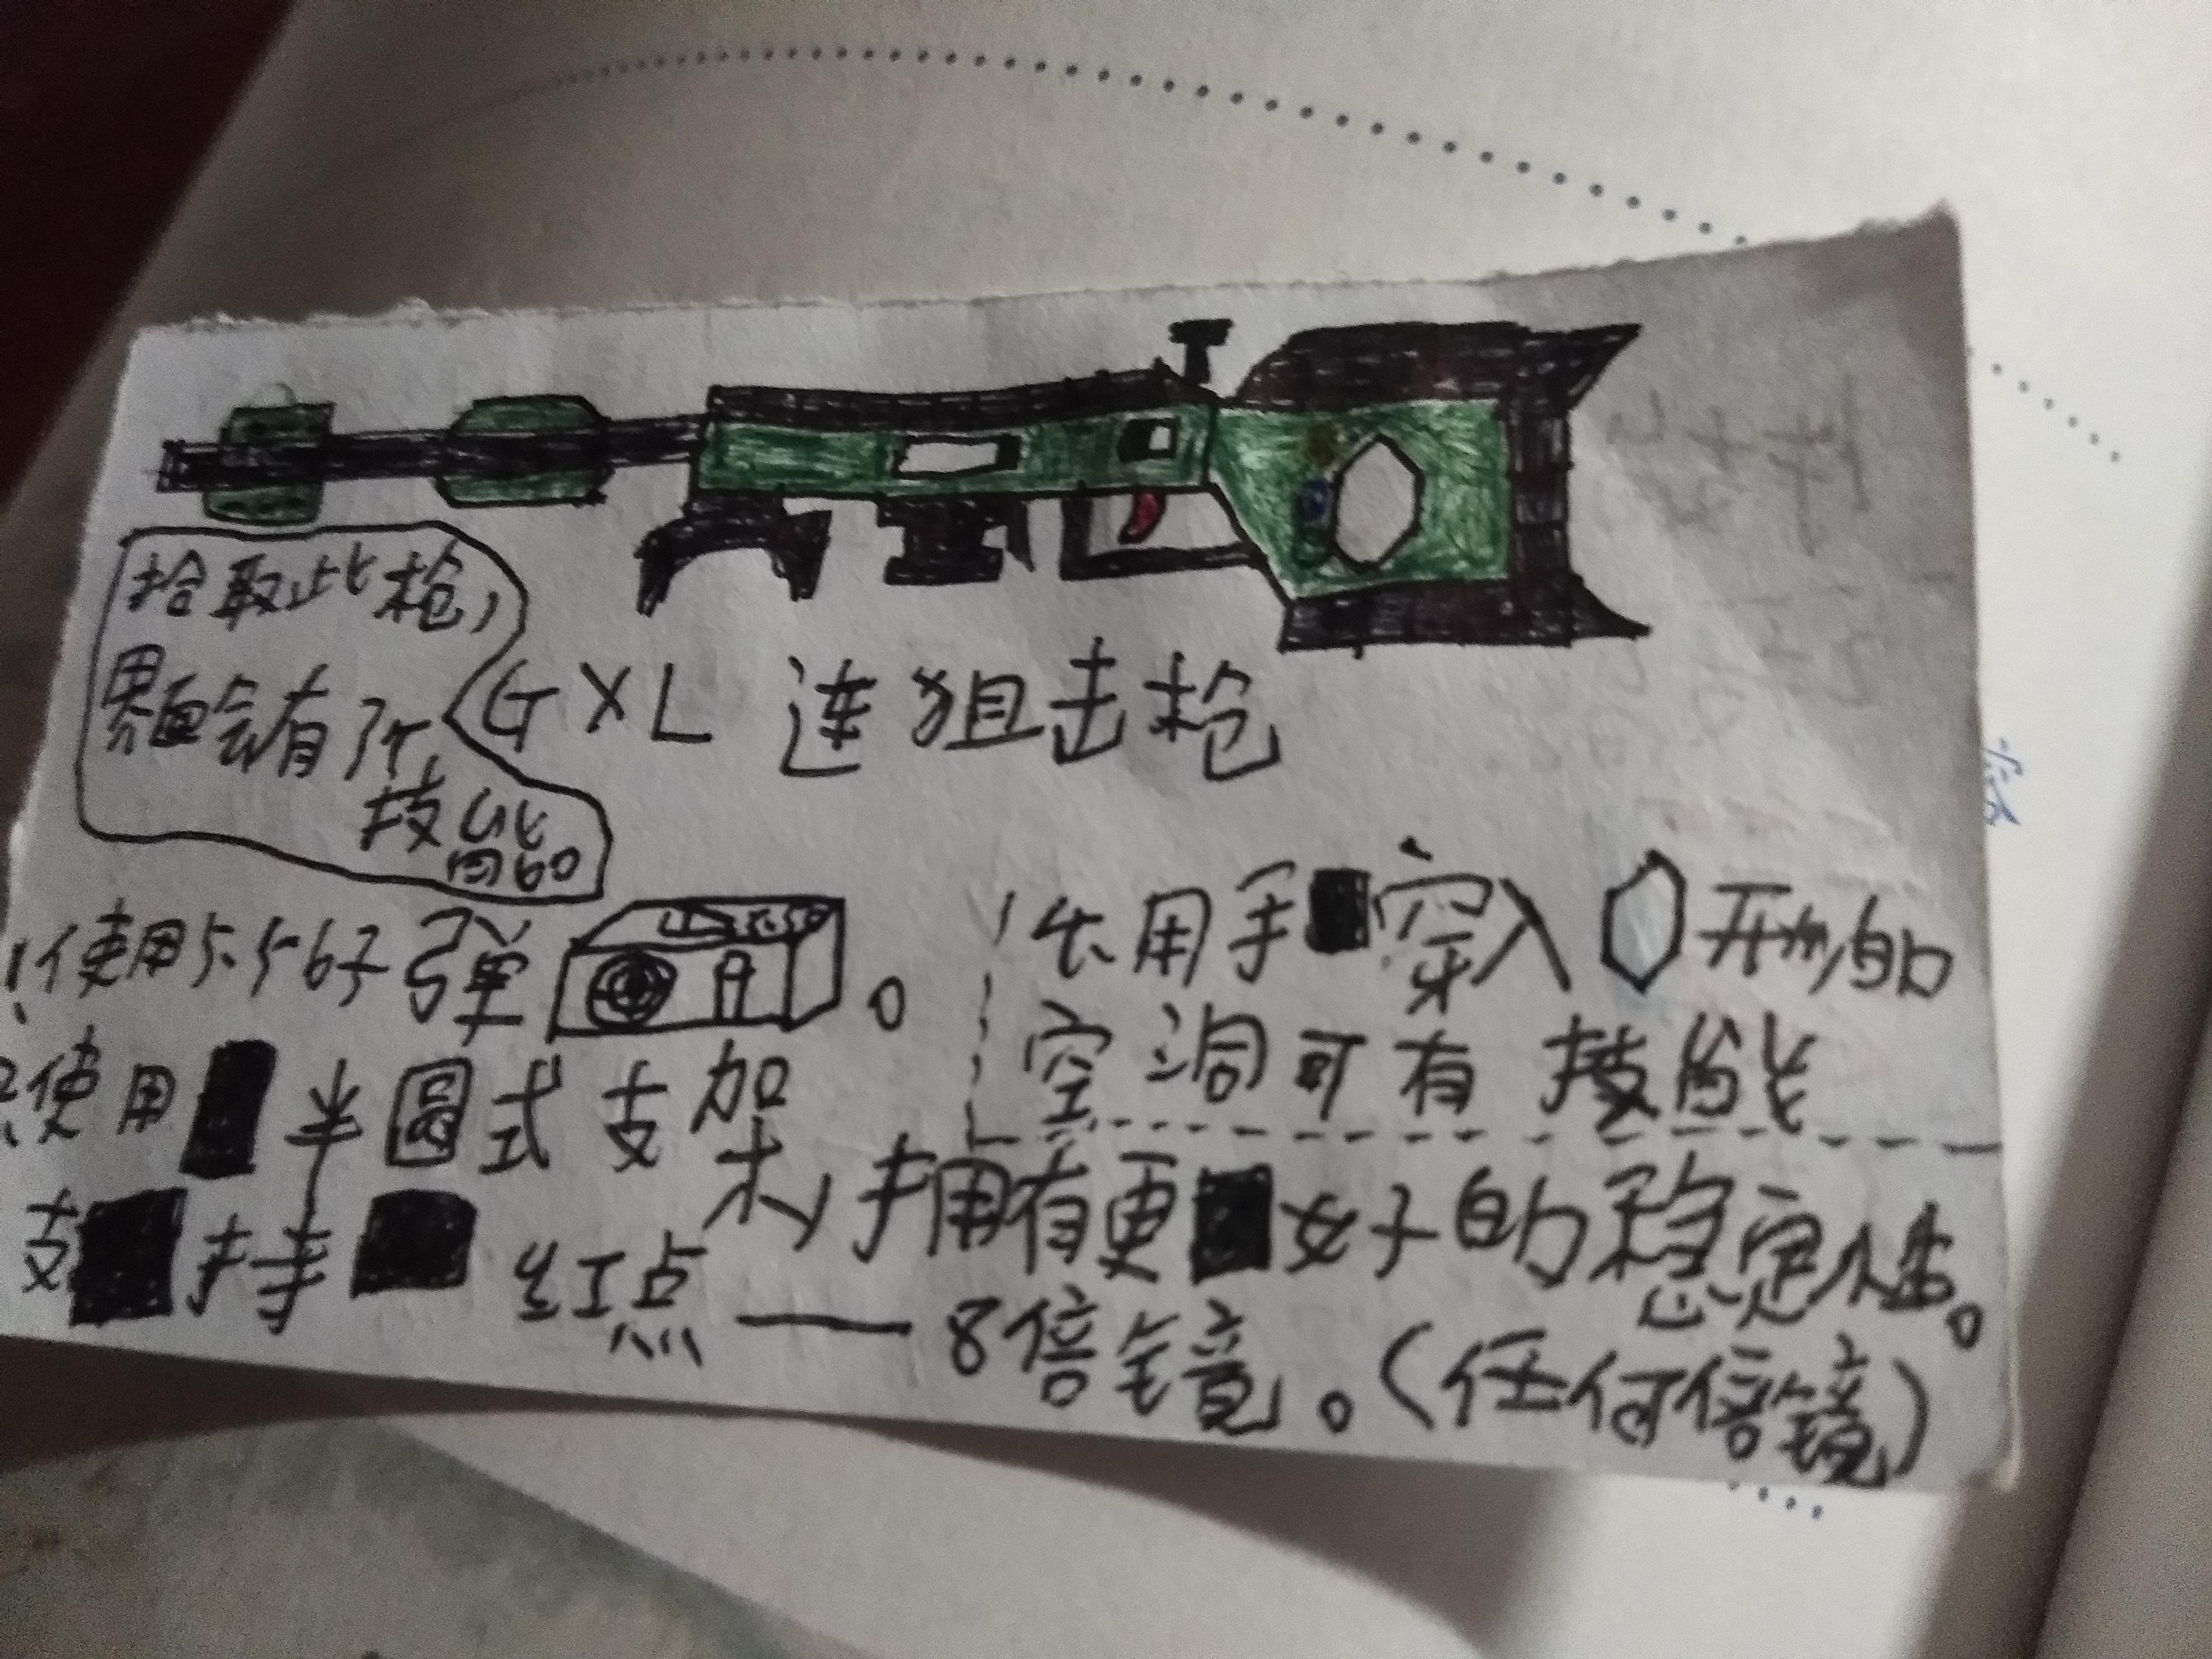 拾取此枪,
界面会有所
技能
GXL 连狙击枪
使用5.56子弹 。
用手 穿入 形的
空洞可有技能
使用 半圆式支架,拥有更 好的稳定性。
支 持 红点——8倍镜。(任何倍镜)